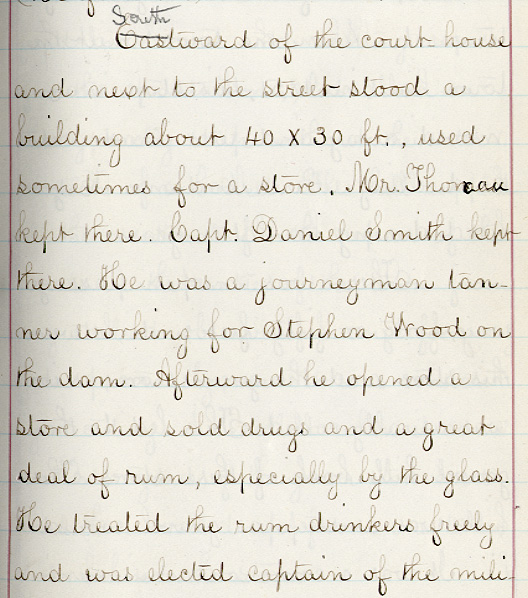 South
Eastward of the court-house
and next to the street stood a
building about 40 X 30 ft., used
sometimes for a store. Mr. Thoreau
kept there. Capt. Daniel Smith kept
there. He was a journeyman tan-
ner working for Stephen Wood on
the dam. Afterward he opened a
store and sold drugs and a great
deal of rum, especially by the glass.
He treated the rum drinkers freely
and was elected captain of the mili-